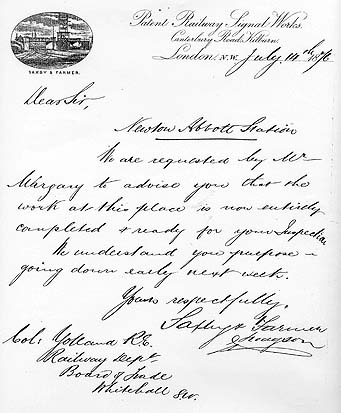 Patent Railway Signal Works.
Canterbury Road, Kilburn.
London, N.W. July. 14th 1876
SAXBY & FARMER.
Dear Sir,
Newton Abbott Station
We are requested by Mr
Margary to advise you that the
work at this place is now entirely
completed & ready for your Inspection
We understand you purpose
going down early next week.
Yours respectfully,
Saxby & Farmer
Col: Yolland R.E.
Railway Dept.
Board of Trade
Whitehall SW.